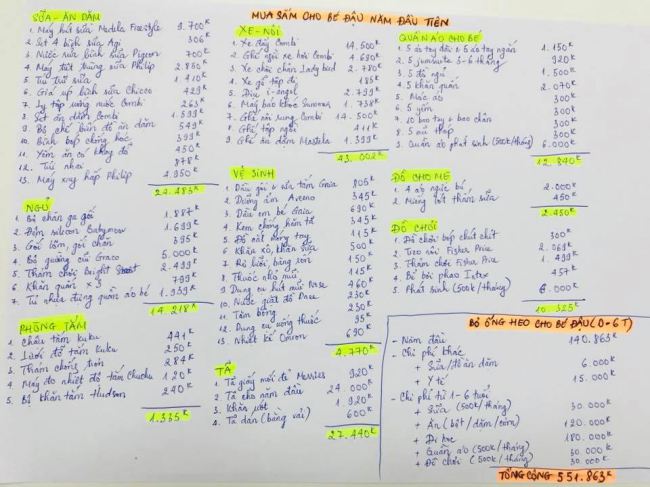 MUA SẮM CHO BÉ ĐẬU NĂM ĐẦU TIÊN
SỮA - ĂN DẶM
1. Máy hút sữa Medela Freestyle 9.700K
2. Set 4 bình sữa Agi 306K
3. Nước rửa bình sữa Pigeon 700K
4. Máy tiệt trùng sữa Philip 2.850K
5. Túi trữ sữa 1.410K
6. Giá úp bình sữa Chicco 429K
7. Ly tập uống nước Combi 263K
8. Set ăn dặm Combi 1.599K
9. Bộ chế biến đồ ăn dặm 549K
10. Bình bóp chống hóc 399K
11. Yếm ăn cơ không đổ 450K
12. Túi nhai 878K
13. Máy xay hấp Philip 4.950K
24.483K
NGỦ
1. Bộ chăn ga gối 1.887K
2. Đệm silicon Babymoov 1.699K
3. Gối lõm, gối chặn 395K
4. Bộ quây cũi Graco 5.000K
5. Thảm chơi Bright 2.499K
6. Khăn quấn x 3 799K
7. Tủ nhựa đựng quần áo bé 1.939K
14.218K
PHÒNG TẮM
1. Chậu tắm kuku 441K
2. Lưới đỡ tắm kuku 250K
3. Thảm chống trơn 284K
4. Máy đo nhiệt độ tắm Chuchu 120K
5. Bộ khăn tắm Hudson 240K
1.335K
XE - NÔI
1. Xe đẩy Combi 14.500K
2. Ghế ngồi xe hơi Combi 4.690K
3. Xe chòi chân Lady bird 2.780K
4. Xe gỗ tập đi 185K
5. Địu i-angel 2.799K
6. Máy báo khóc Summer 1.738K
7. Ghế nôi rung Combi 14.500K
8. Ghế tập ngồi 411K
9. Ghế ăn dặm Mastela 1.399K
43.002K
VỆ SINH
1. Dầu gội & sữa tắm Gaia 805K
2. Dưỡng ẩm Aveno 345K
3. Dầu em bé Gaia 690K
4. Kem chống hăm tã 345K
5. Đồ cắt móng tay 115K
6. Khăn xô, khăn sữa 500K
7. Rơ lưỡi, băng rốn 150K
8. Thuốc nhỏ mũi 115K
9. Dụng cụ hút mũi Nose 460K
10. Nước giặt đồ Dnee 230K
11. Tăm bông 230K
12. Dụng cụ uống thuốc 95K
13. Nhiệt kế Omron 690K
4.770K
TÃ
1. Tã giấy mới đẻ Merries 920K
2. Tã cho năm đầu 24.000K
3. Khăn ướt 1.920K
4. Tã dán (bằng vải) 600K
27.440K
QUẦN ÁO CHO BÉ
1. 5 áo tay dài & 5 áo tay ngắn 1.150K
2. 5 jumsuite 3-6 tháng 920K
3. 5 đồ ngủ 1.500K
4. 5 khăn quấn 2.070K
5. Móc áo 300K
6. 5 yếm 300K
7. 10 bao tay & bao chân 300K
8. 5 mũ thóp 300K
9. Quần áo phát sinh (500K/tháng) 6.000K
12.840K
ĐỒ CHO MẸ
1. 4 áo ngực bú 2.000K
2. Miếng lót thấm sữa 450K
2.450K
ĐỒ CHƠI
1. Đồ chơi bóp chút chít 300K
2. Treo nôi Fisher Price 2.069K
3. Thảm chơi Fisher Price 1.499K
4. Bể bơi phao Intex 457K
5. Phát sinh (500K/tháng) 6.000K
10.325K
BỎ ỐNG HEO CHO BÉ ĐẬU (0-6T)
- Năm đầu 140.863K
- Chi phí khác
+ Sữa/tã/ăn dặm 6.000K
+ Y tế 15.000K
- Chi phí từ 1-6 tuổi
+ Sữa (500K/tháng) 30.000K
+ Ăn (bột/dặm/cơm) 120.000K
+ Đi học 180.000K
+ Quần áo (500K/tháng) 30.000K
+ Đồ chơi (500K/tháng) 30.000K
TỔNG CỘNG 551.863K